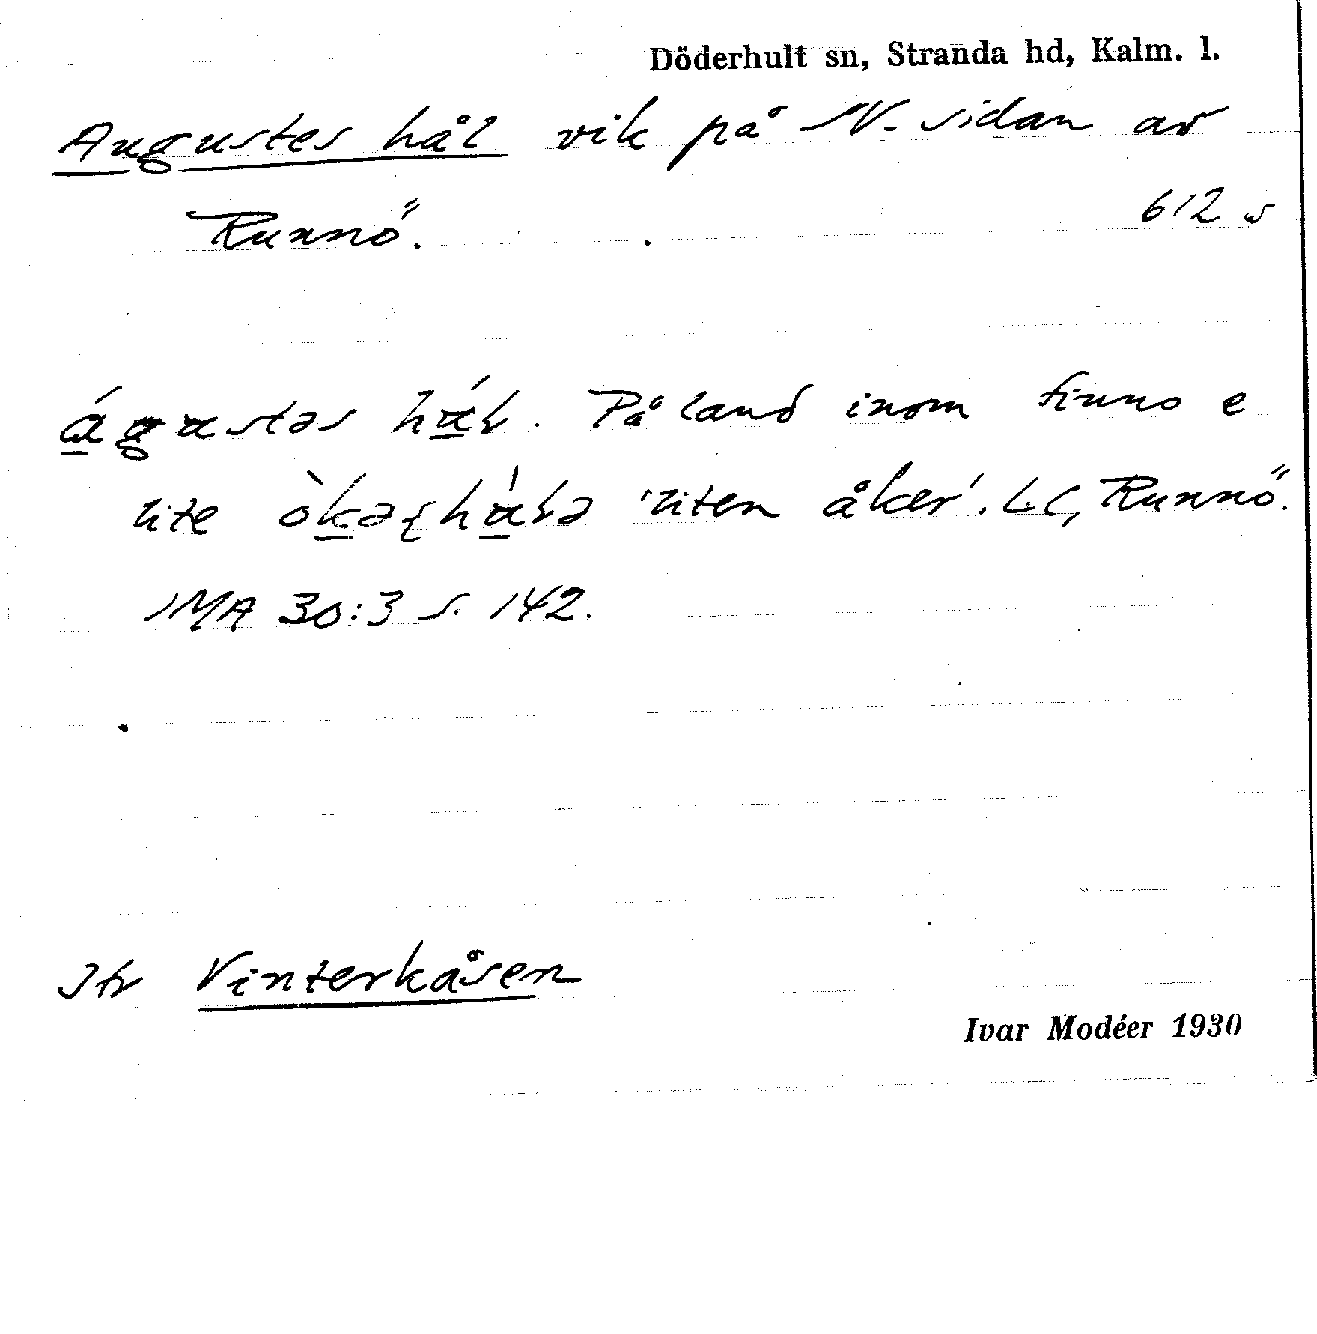 Döderhult sn, Stranda hd, Kalm. l.
Augustes hål vik på N-sidan av
Runnö.
612 s
águstəs hál. På land inom finns e
lite òkəʂhálə 'liten åker'. LC, Runnö.
IMA 30:3 s. 142.
Jfr Vinterkåsen
Ivar Modéer 1930